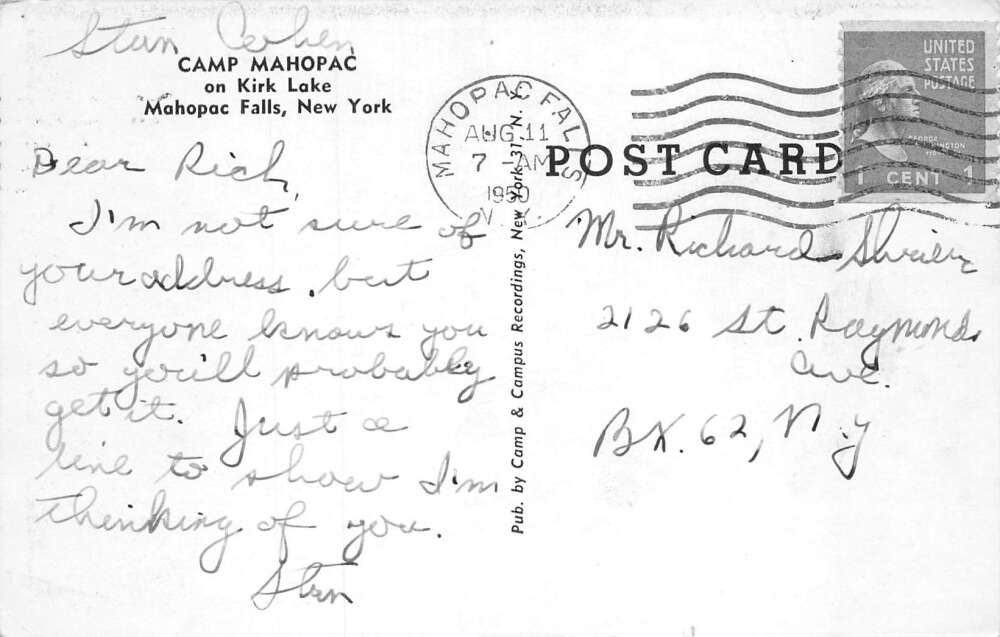 Stan Cohen
CAMP MAHOPAC
on Kirk Lake
Mahopac Falls, New York
Dear Rich,
I'm not sure of
your address, but
everyone knows you
so you'll probably
get it. Just a
line to show I'm
thinking of you.
Stan
Pub. by Camp & Campus Recordings, New York 31, N. Y.
MAHOPAC FALLS
AUG 11
7 - AM
1950
N. Y.
POST CARD
UNITED
STATES
POSTAGE
GEORGE
WASHINGTON
1 CENT 1
Mr. Richard
2126 St. Raymond
Ave.
BX. 62, N.Y